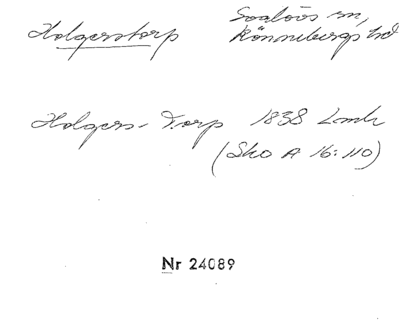 Holgerstorp Svalövs sn,
Rönnebergs hd
Holgers-Torp 1838 Lmk
(Sko A 16:110)
Nr 24089